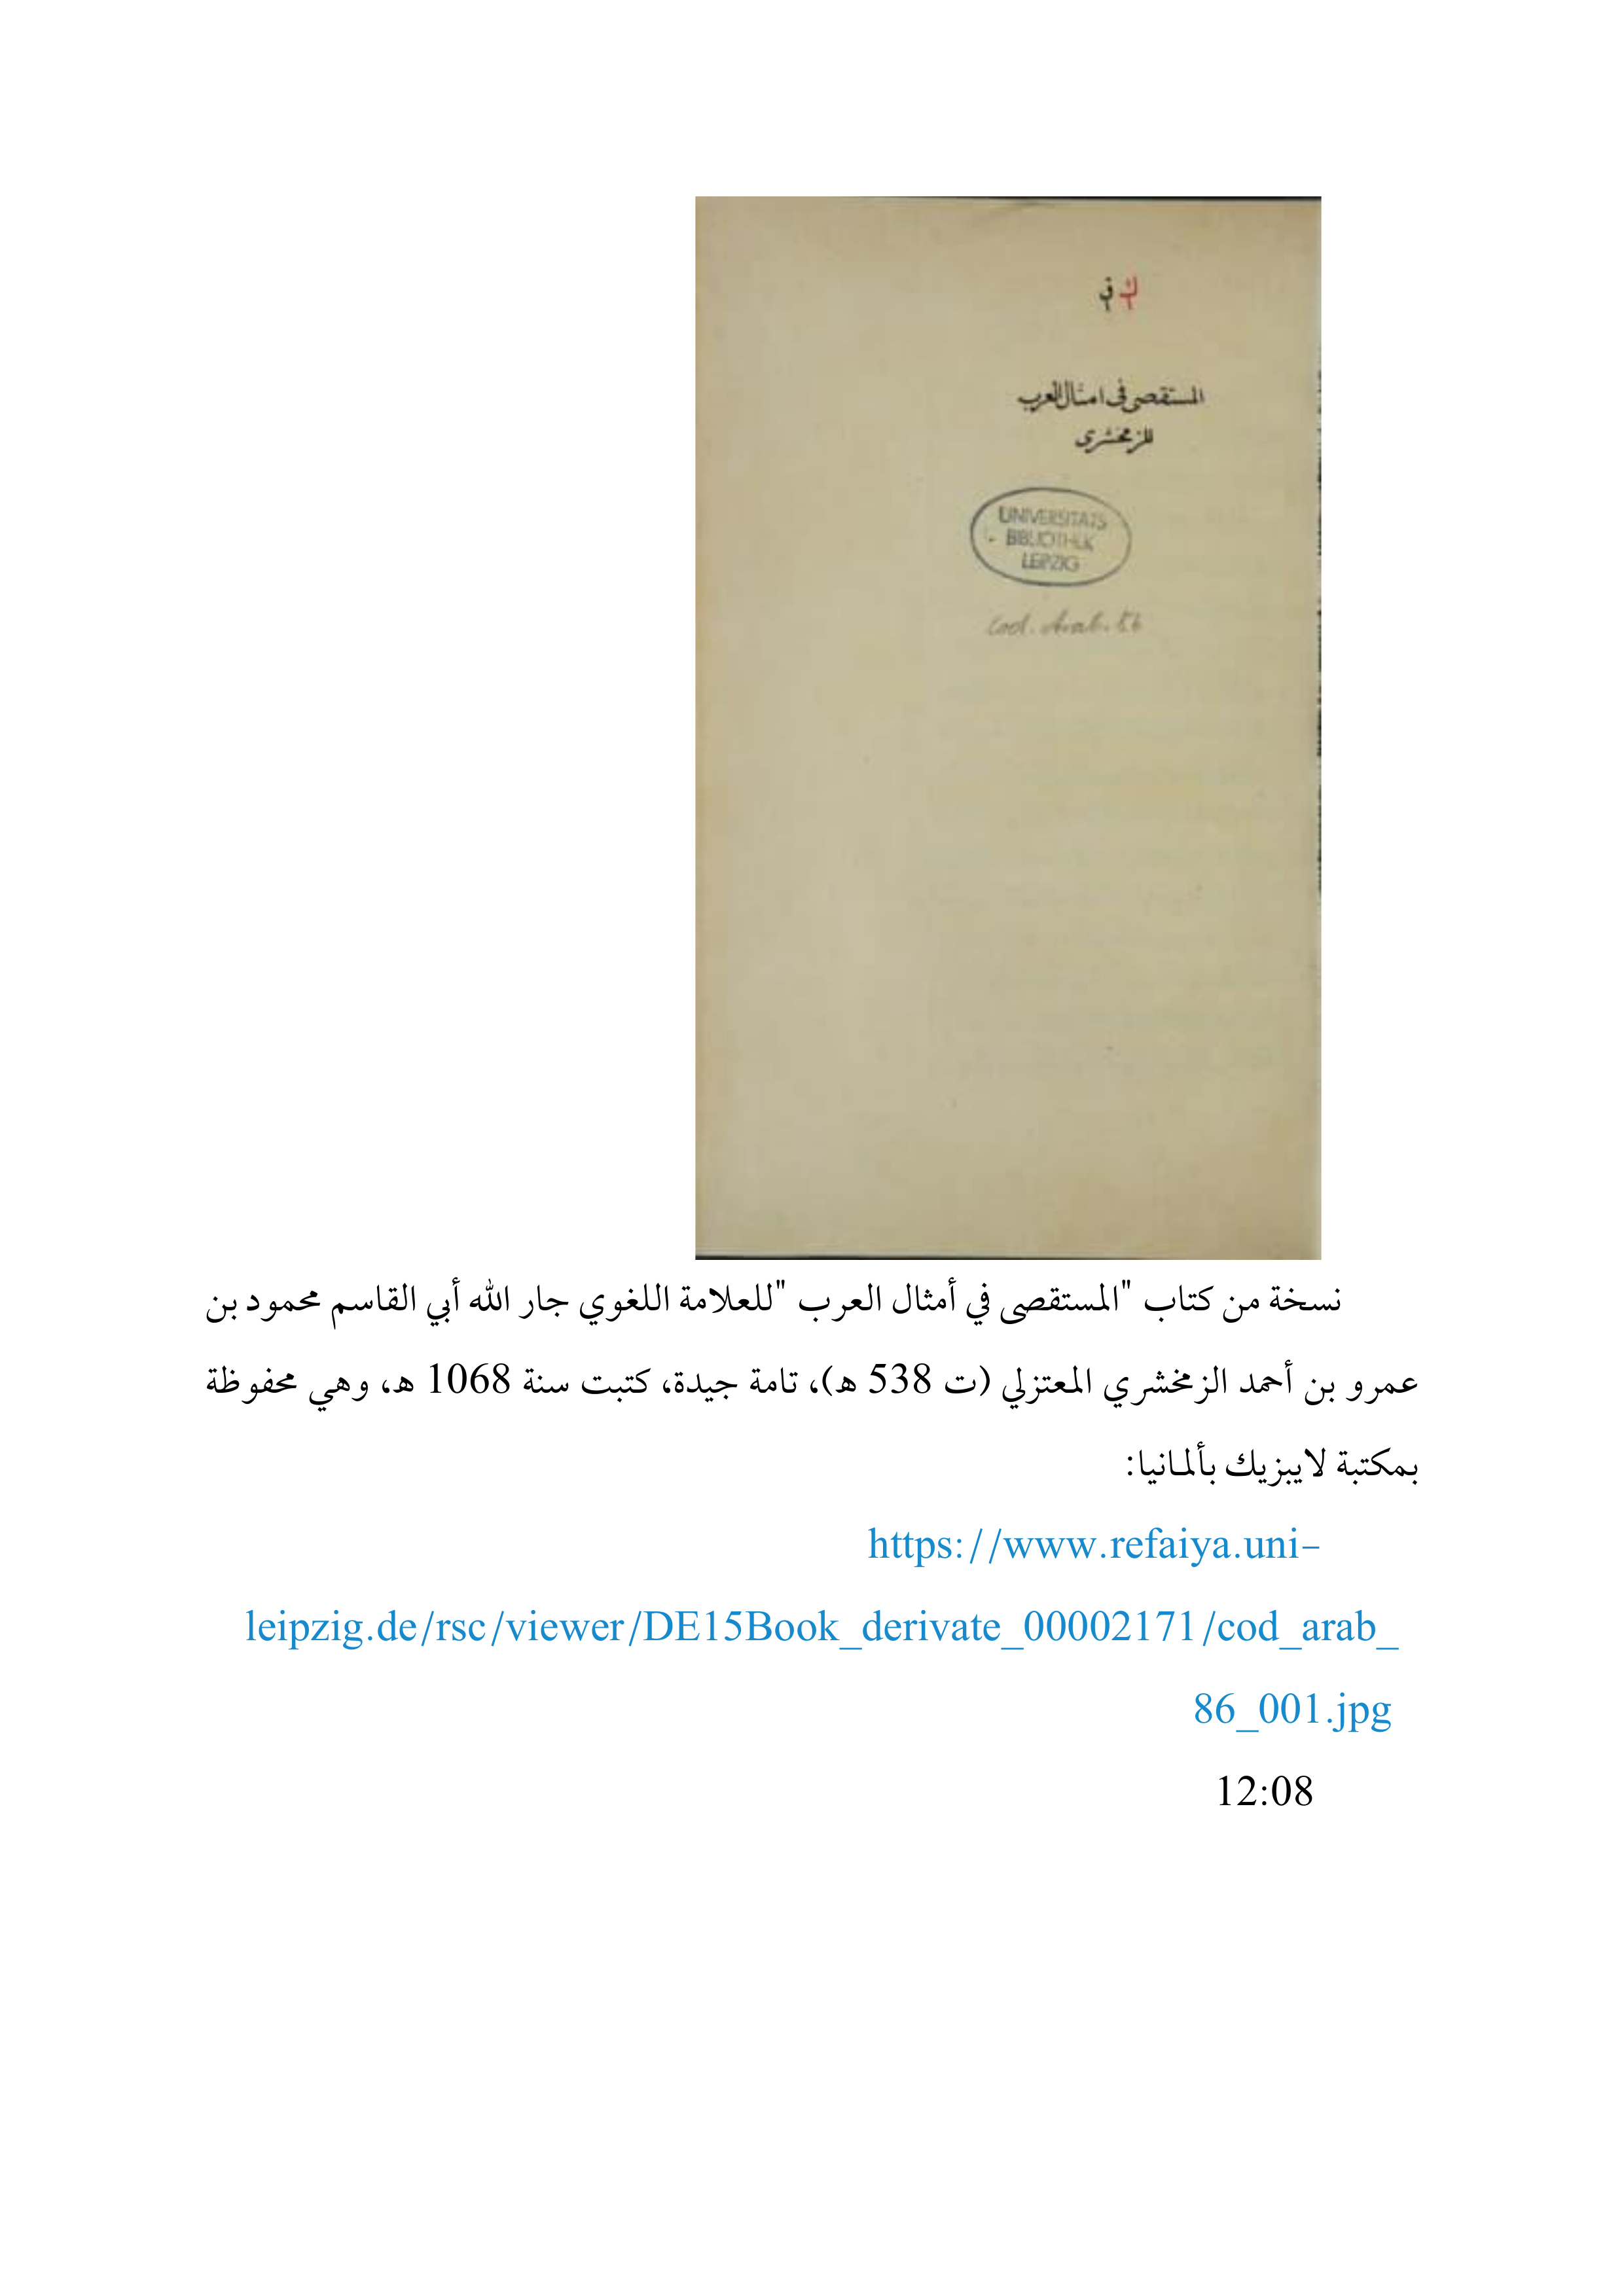 المستقصى فى امثال العرب
للزمخشرى
UNIVERSITATS
BIBLIOTHEK
LEIPZIG
Cod. Arab. 86
نسخة من كتاب "المستقصى في أمثال العرب "للعلامة اللغوي جار الله أبي القاسم محمود بن
عمرو بن أحمد الزمخشري المعتزلي (ت 538 ه)، تامة جيدة، كتبت سنة 1068 ه، وهي محفوظة
بمكتبة لايبزيك بألمانيا:
https://www.refaiya.uni-
leipzig.de/rsc/viewer/DE15Book_derivate_00002171/cod_arab_
86_001.jpg
12:08